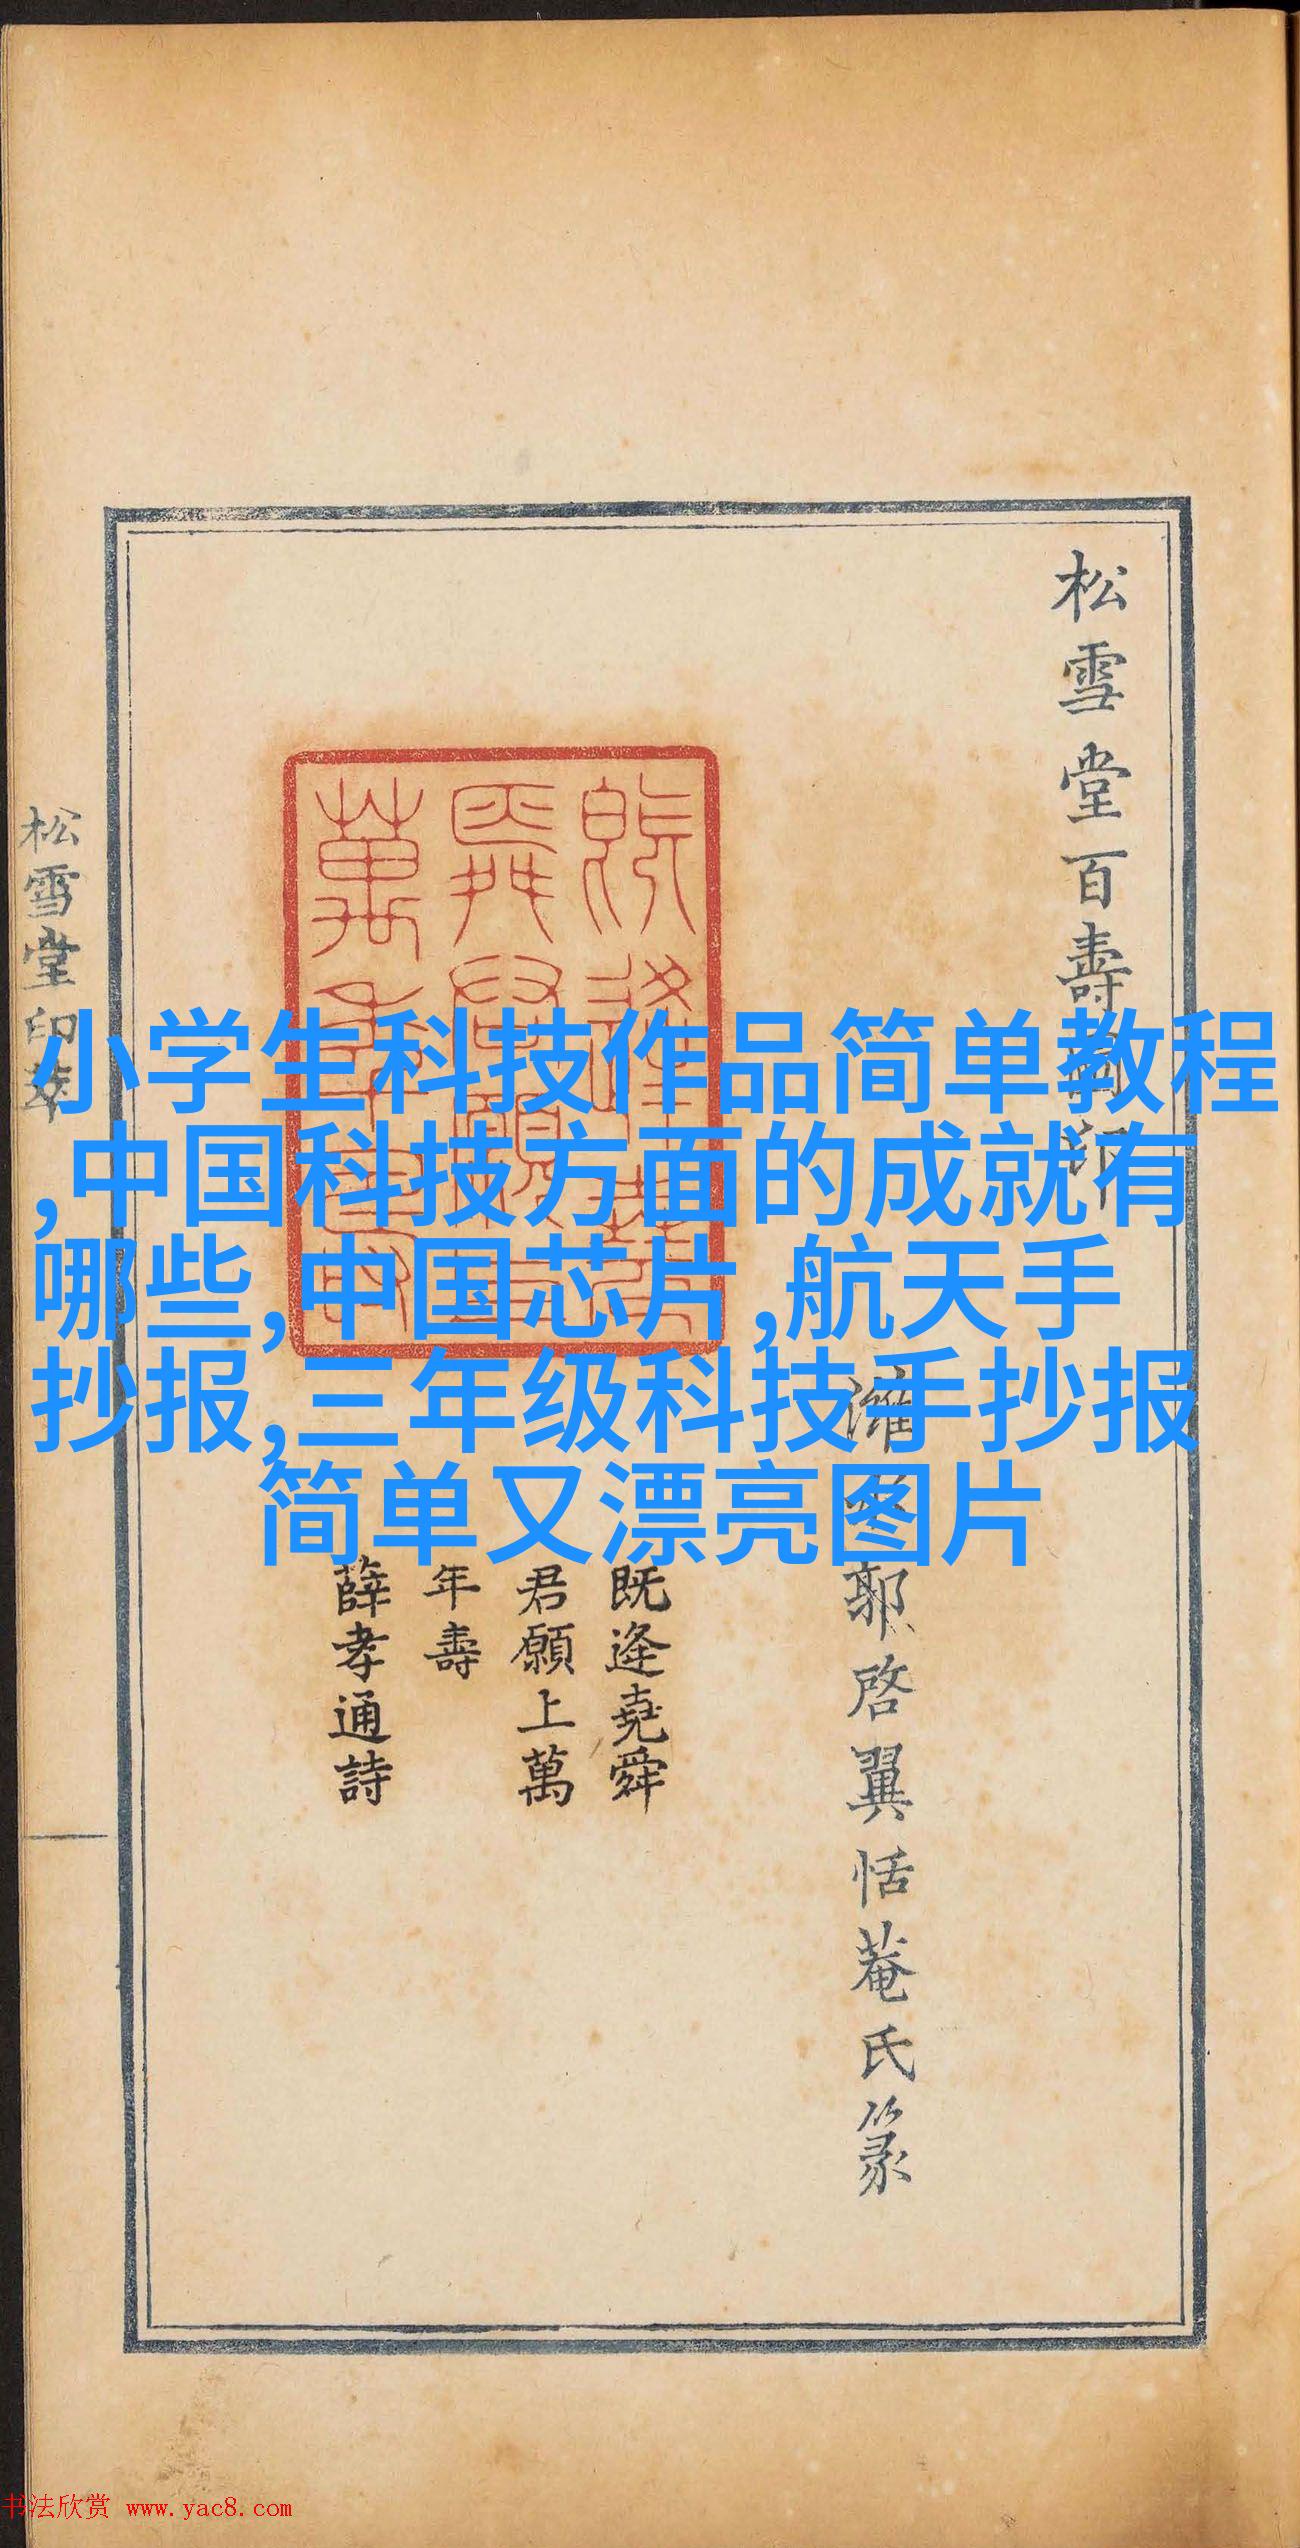 松雪堂百壽
濰
郭啓翼恬菴氏篆
既逢堯舜
君願上萬
年壽
薛孝通詩
松雪堂印萃
小学生科技作品简单教程
,中国科技方面的成就有
哪些,中国芯片,航天手
抄报,三年级科技手抄报
简单又漂亮图片
书法欣赏 www.yac8.com